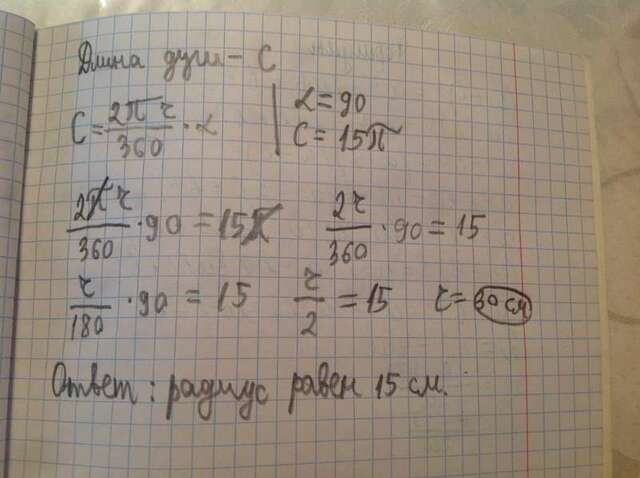 Длина дуги - C
C = 2πr/360 · α | α = 90
C = 15π
2πr/360 · 90 = 15π 2r/360 · 90 = 15
r/180 · 90 = 15 r/2 = 15 r = 30 см
Ответ: радиус равен 15 см.